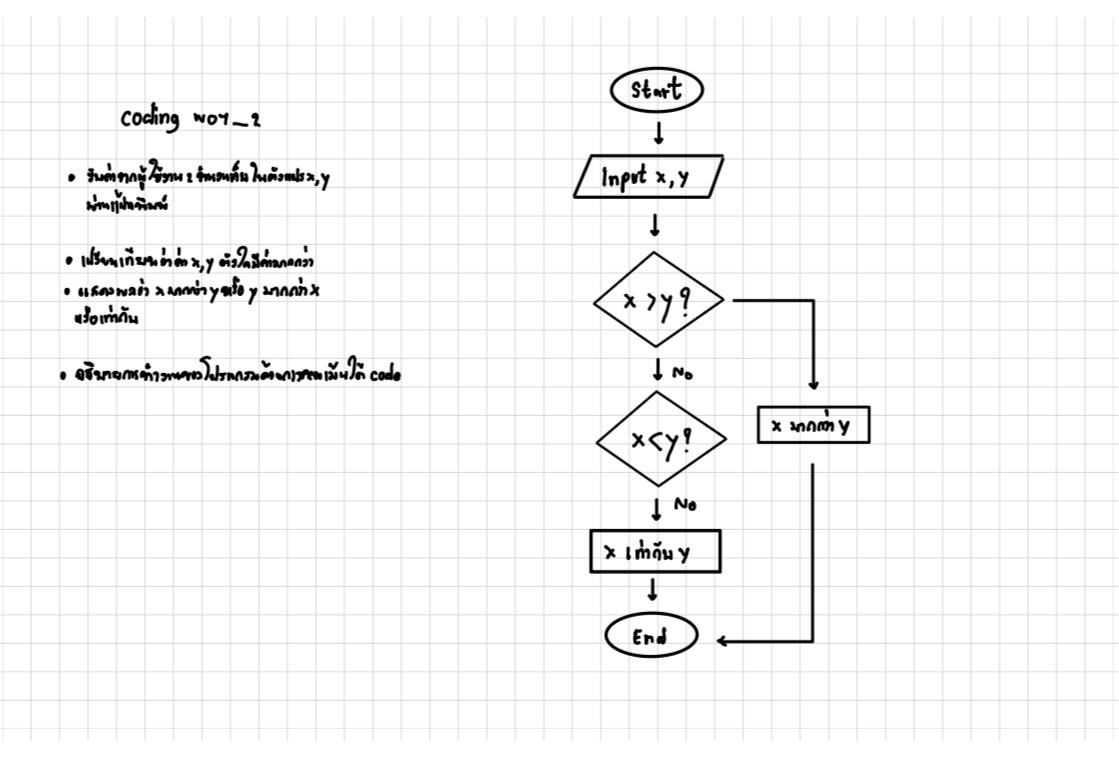 Coding W04_2
• รับค่าจากผู้ใช้งาน 2 จำนวนเก็บในตัวแปร x, y
ผ่านแป้นพิมพ์
• เปรียบเทียบว่าค่า x, y ตัวใดมีค่ามากกว่า
• แสดงผลว่า x มากกว่า y หรือ y มากกว่า x
หรือเท่ากัน
• อธิบายการทำงานของโปรแกรมด้วยการคอมเม้นใต้ code
Start
Input x, y
x > y?
No
x < y?
x มากกว่า y
No
x เท่ากับ y
End